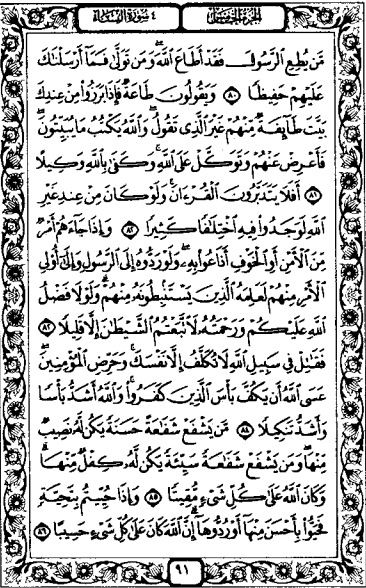 الجزء الخامس
٤ سورة النساء
مَّن يُطِعِ ٱلرَّسُولَ فَقَدْ أَطَاعَ ٱللَّهَ ۖ وَمَن تَوَلَّىٰ فَمَآ أَرْسَلْنَٰكَ
عَلَيْهِمْ حَفِيظًا ٨٠ وَيَقُولُونَ طَاعَةٌ فَإِذَا بَرَزُوا۟ مِنْ عِندِكَ
بَيَّتَ طَآئِفَةٌ مِّنْهُمْ غَيْرَ ٱلَّذِى تَقُولُ ۖ وَٱللَّهُ يَكْتُبُ مَا يُبَيِّتُونَ ۖ
فَأَعْرِضْ عَنْهُمْ وَتَوَكَّلْ عَلَى ٱللَّهِ ۚ وَكَفَىٰ بِٱللَّهِ وَكِيلًا
٨١ أَفَلَا يَتَدَبَّرُونَ ٱلْقُرْءَانَ ۚ وَلَوْ كَانَ مِنْ عِندِ غَيْرِ
ٱللَّهِ لَوَجَدُوا۟ فِيهِ ٱخْتِلَٰفًا كَثِيرًا ٨٢ وَإِذَا جَآءَهُمْ أَمْرٌ
مِّنَ ٱلْأَمْنِ أَوِ ٱلْخَوْفِ أَذَاعُوا۟ بِهِۦ ۖ وَلَوْ رَدُّوهُ إِلَى ٱلرَّسُولِ وَإِلَىٰٓ أُو۟لِى
ٱلْأَمْرِ مِنْهُمْ لَعَلِمَهُ ٱلَّذِينَ يَسْتَنۢبِطُونَهُۥ مِنْهُمْ ۗ وَلَوْلَا فَضْلُ
ٱللَّهِ عَلَيْكُمْ وَرَحْمَتُهُۥ لَٱتَّبَعْتُمُ ٱلشَّيْطَٰنَ إِلَّا قَلِيلًا ٨٣
فَقَٰتِلْ فِى سَبِيلِ ٱللَّهِ لَا تُكَلَّفُ إِلَّا نَفْسَكَ ۚ وَحَرِّضِ ٱلْمُؤْمِنِينَ ۖ
عَسَى ٱللَّهُ أَن يَكُفَّ بَأْسَ ٱلَّذِينَ كَفَرُوا۟ ۚ وَٱللَّهُ أَشَدُّ بَأْسًا
وَأَشَدُّ تَنكِيلًا ٨٤ مَّن يَشْفَعْ شَفَٰعَةً حَسَنَةً يَكُن لَّهُۥ نَصِيبٌ
مِّنْهَا ۖ وَمَن يَشْفَعْ شَفَٰعَةً سَيِّئَةً يَكُن لَّهُۥ كِفْلٌ مِّنْهَا ۗ
وَكَانَ ٱللَّهُ عَلَىٰ كُلِّ شَىْءٍ مُّقِيتًا ٨٥ وَإِذَا حُيِّيتُم بِتَحِيَّةٍ
فَحَيُّوا۟ بِأَحْسَنَ مِنْهَآ أَوْ رُدُّوهَآ ۗ إِنَّ ٱللَّهَ كَانَ عَلَىٰ كُلِّ شَىْءٍ حَسِيبًا ٨٦
٩١